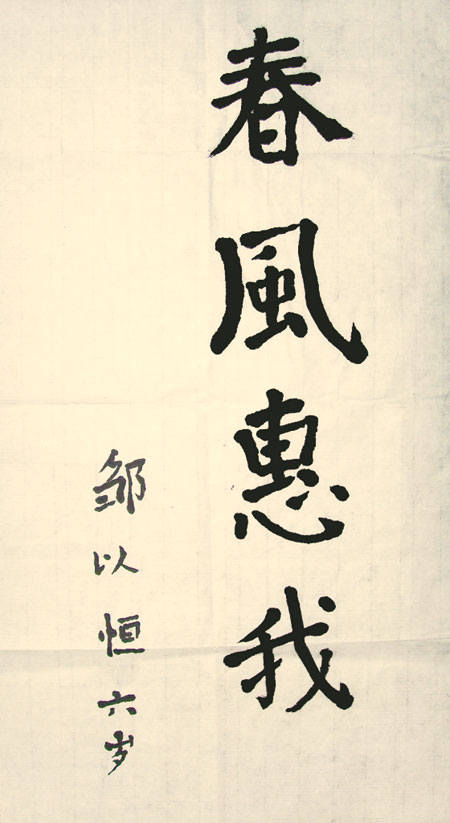 春風惠我
邹以恒六岁